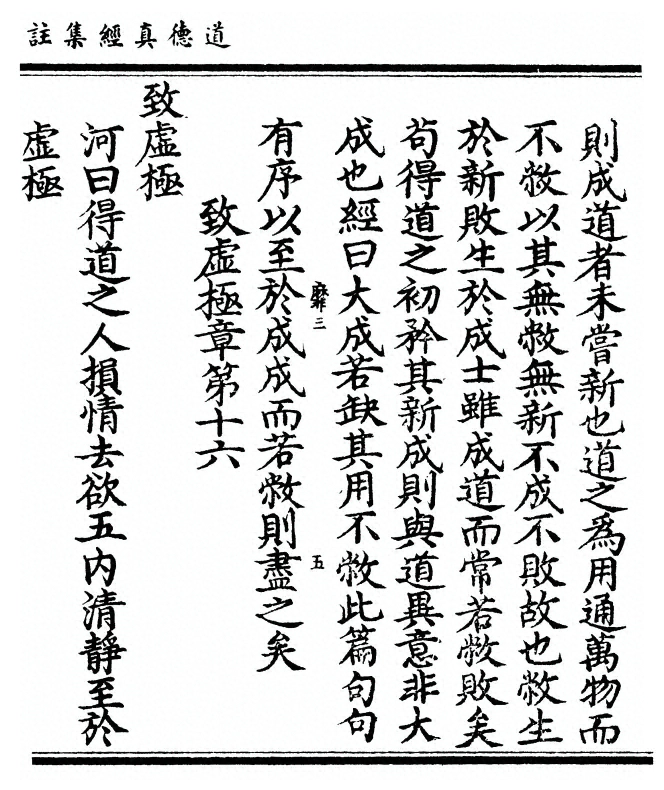 道德真經集註
則成道者未嘗新也道之爲用通萬物而
不敝以其無敝無新不成不敗故也敝生
於新敗生於成士雖成道而常若敝敗矣
茍得道之初矜其新成則與道異意非大
成也經曰大成若缺其用不敝此篇句句
靡三
五
有序以至於成成而若敝則盡之矣
致虛極章第十六
致虛極
河曰得道之人損情去欲五內清靜至於
虛極